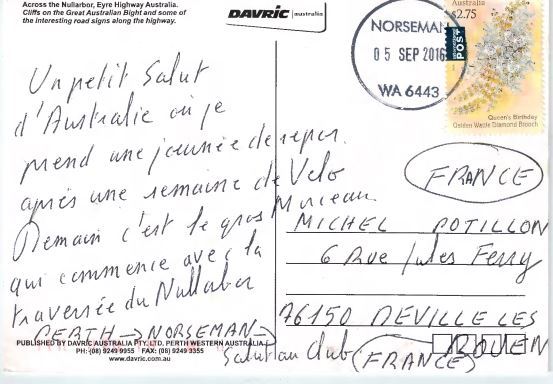 Across the Nullarbor, Eyre Highway Australia.
Cliffs on the Great Australian Bight and some of
the interesting road signs along the highway.
DAVRIC australia
NORSEMAN
05 SEP 2016
WA 6443
Australia
$2.75
POST
Queen's Birthday
Golden Wattle Diamond Brooch
Un petit Salut
d'Australie où je
prend une journée de repos
après une semaine de Velo
Demain c'est le gros Morceau
qui commence avec la
traversée du Nullabor
PERTH → NORSEMAN →
Salut au club
FRANCE
MICHEL POTILLON
6 Rue Jules Ferry
76150 DEVILLE LES
ROUEN
(FRANCE)
PUBLISHED BY DAVRIC AUSTRALIA PTY. LTD. PERTH WESTERN AUSTRALIA.
PH: (08) 9249 9955 FAX: (08) 9249 3355
www.davric.com.au